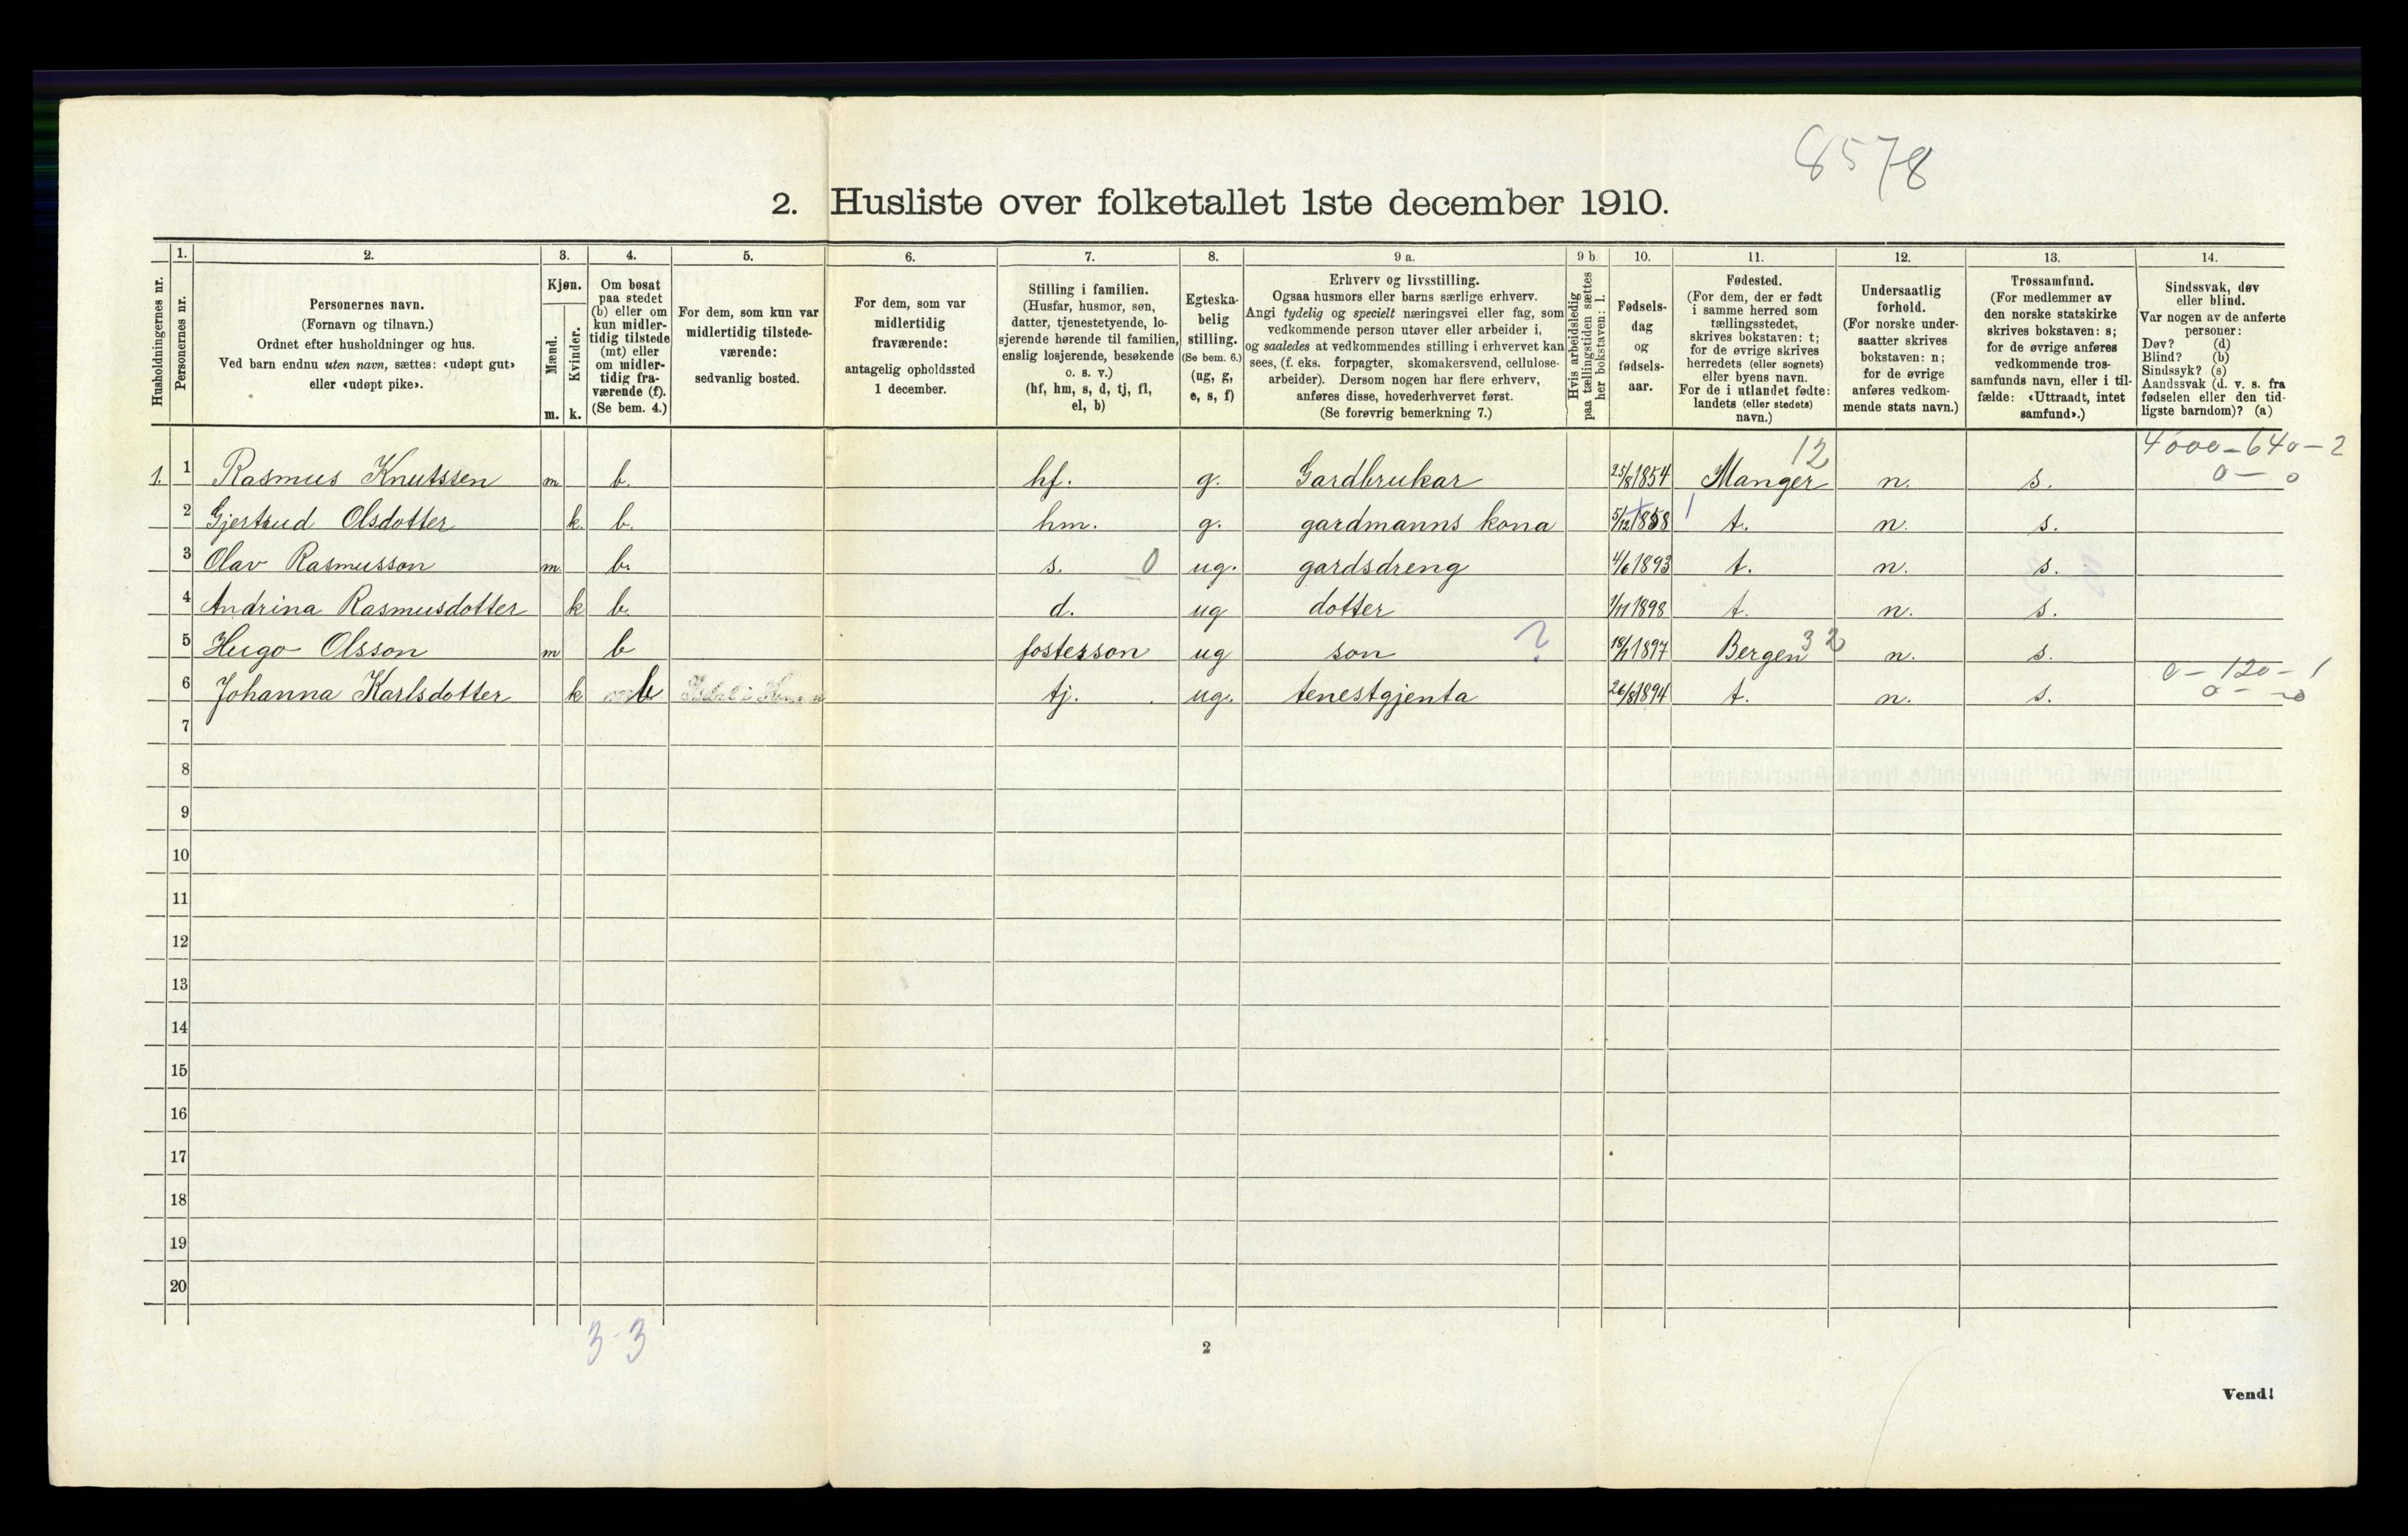 8578
2. Husliste over folketallet 1ste december 1910.
Husholdningernes nr.
1.
Personernes nr.
2.
Personernes navn.
(Fornavn og tilnavn.)
Ordnet efter husholdninger og hus.
Ved barn endnu uten navn, sættes: «udøpt gut»
eller «udøpt pike».
3.
Kjøn.
Mænd.
m.
Kvinder.
k.
4.
Om bosat
paa stedet
(b) eller om
kun midler-
tidig tilstede
(mt) eller
om midler-
tidig fra-
værende (f).
(Se bem. 4.)
5.
For dem, som kun var
midlertidig tilstede-
værende:
sedvanlig bosted.
6.
For dem, som var
midlertidig
fraværende:
antagelig opholdssted
1 december.
7.
Stilling i familien.
(Husfar, husmor, søn,
datter, tjenestetyende, lo-
sjerende hørende til familien,
enslig losjerende, besøkende
o. s. v.)
(hf, hm, s, d, tj, fl,
el, b)
8.
Egteska-
belig
stilling.
(Se bem. 6.)
(ug, g,
e, s, f)
9 a.
Erhverv og livsstilling.
Ogsaa husmors eller barns særlige erhverv.
Angi tydelig og specielt næringsvei eller fag, som
vedkommende person utøver eller arbeider i,
og saaledes at vedkommendes stilling i erhvervet kan
sees, (f. eks. forpagter, skomakersvend, cellulose-
arbeider). Dersom nogen har flere erhverv,
anføres disse, hovederhvervet først.
(Se forøvrig bemerkning 7.)
9 b
Hvis arbeidsledig
paa tællingstiden sættes
her bokstaven: l.
10.
Fødsels-
dag
og
fødsels-
aar.
11.
Fødested.
(For dem, der er født
i samme herred som
tællingsstedet,
skrives bokstaven: t;
for de øvrige skrives
herredets (eller sognets)
eller byens navn.
For de i utlandet fødte:
landets (eller stedets)
navn.)
12.
Undersaatlig
forhold.
(For norske under-
saatter skrives
bokstaven: n;
for de øvrige
anføres vedkom-
mende stats navn.)
13.
Trossamfund.
(For medlemmer av
den norske statskirke
skrives bokstaven: s;
for de øvrige anføres
vedkommende tros-
samfunds navn, eller i til-
fælde: «Uttraadt, intet
samfund».)
14.
Sindssvak, døv
eller blind.
Var nogen av de anførte
personer:
Døv? (d)
Blind? (b)
Sindssyk? (s)
Aandssvak (d. v. s. fra
fødselen eller den tid-
ligste barndom)? (a)
12 4000-640-2
1. 1 Rasmus Knutssen m b. hf. g. Gardbrukar 25/8 1854 Manger n. s. 0 - 0
2 Gjertrud Olsdotter k. b. hm. g. gardmanns kona 5/12 1858 1 t. n. s.
3 Olav Rasmusson m b. s. 0 ug. gardsdreng 4/6 1893 t. n. s.
4 Andrina Rasmusdotter k b. d. ug dotter 1/11 1898 t. n. s.
5 Hugo Olsson m b fosterson ug son ? 18/1 1897 Bergen 32 n. s.
0-120-1
6 Johanna Karlsdotter k b tj. ug. tenestgjenta 26/8 1894 t. n. s. 0 - 0
7
8
9
10
11
12
13
14
15
16
17
18
19
20
3-3
2
Vend!